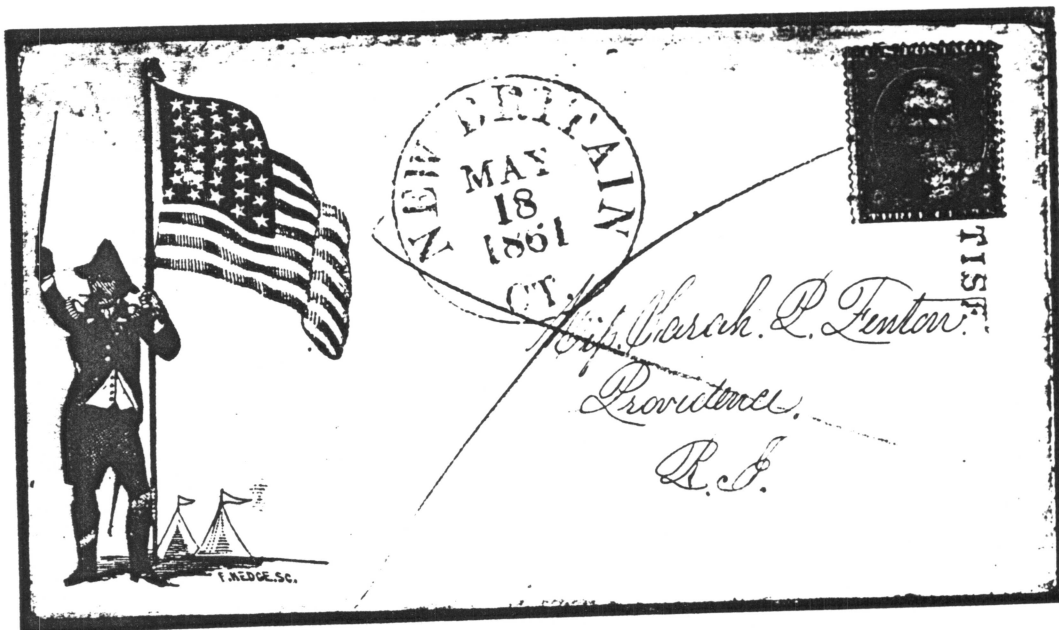 NEW BRITAIN
MAY
18
1861
CT.
TISE
Miss Sarah. P. Fenton.
Providence.
R. I.
F. HEDGE. SC.